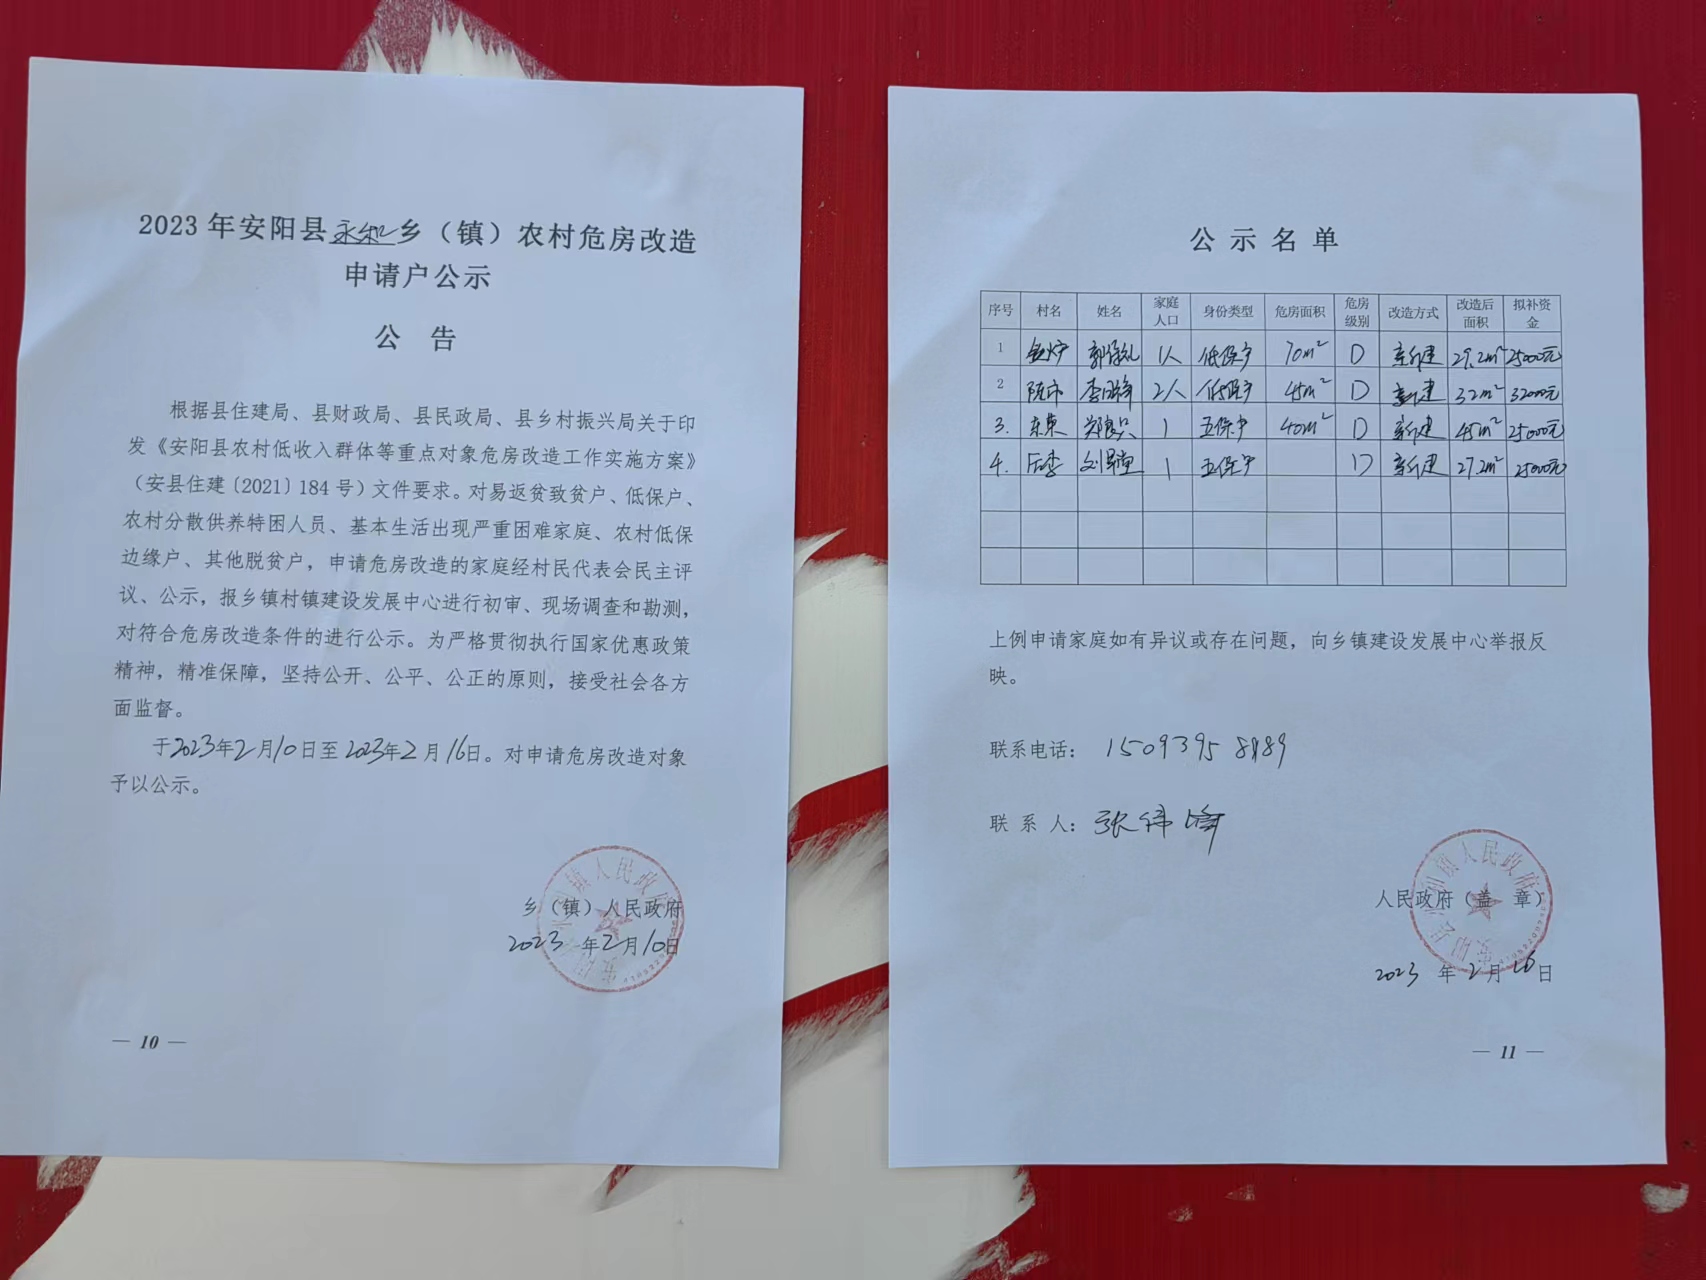 2023年安阳县永和乡（镇）农村危房改造
申请户公示
公 告
根据县住建局、县财政局、县民政局、县乡村振兴局关于印
发《安阳县农村低收入群体等重点对象危房改造工作实施方案》
（安县住建〔2021〕184号）文件要求。对易返贫致贫户、低保户、
农村分散供养特困人员、基本生活出现严重困难家庭、农村低保
边缘户、其他脱贫户，申请危房改造的家庭经村民代表会民主评
议、公示，报乡镇村镇建设发展中心进行初审、现场调查和勘测，
对符合危房改造条件的进行公示。为严格贯彻执行国家优惠政策
精神，精准保障，坚持公开、公平、公正的原则，接受社会各方
面监督。
于2023年2月10日至2023年2月16日。对申请危房改造对象
予以公示。
乡（镇）人民政府
2023年2月10日
— 10 —
公示名单
序号 村名 姓名 家庭人口 身份类型 危房面积 危房级别 改造方式 改造后面积 拟补资金
1 郭保礼 1人 低保户 70m² D 新建 29.2m² 25000元
2 2人 低保户 45m² D 新建 32m² 32000元
3. 东 郑 1 五保户 40m² D 新建 45m² 25000元
4. 后李 刘 1 五保户 D 新建 27.2m² 25000元
上例申请家庭如有异议或存在问题，向乡镇建设发展中心举报反
映。
联系电话：15093958989
联 系 人：张伟峰
人民政府（盖 章）
2023年2月16日
— 11 —